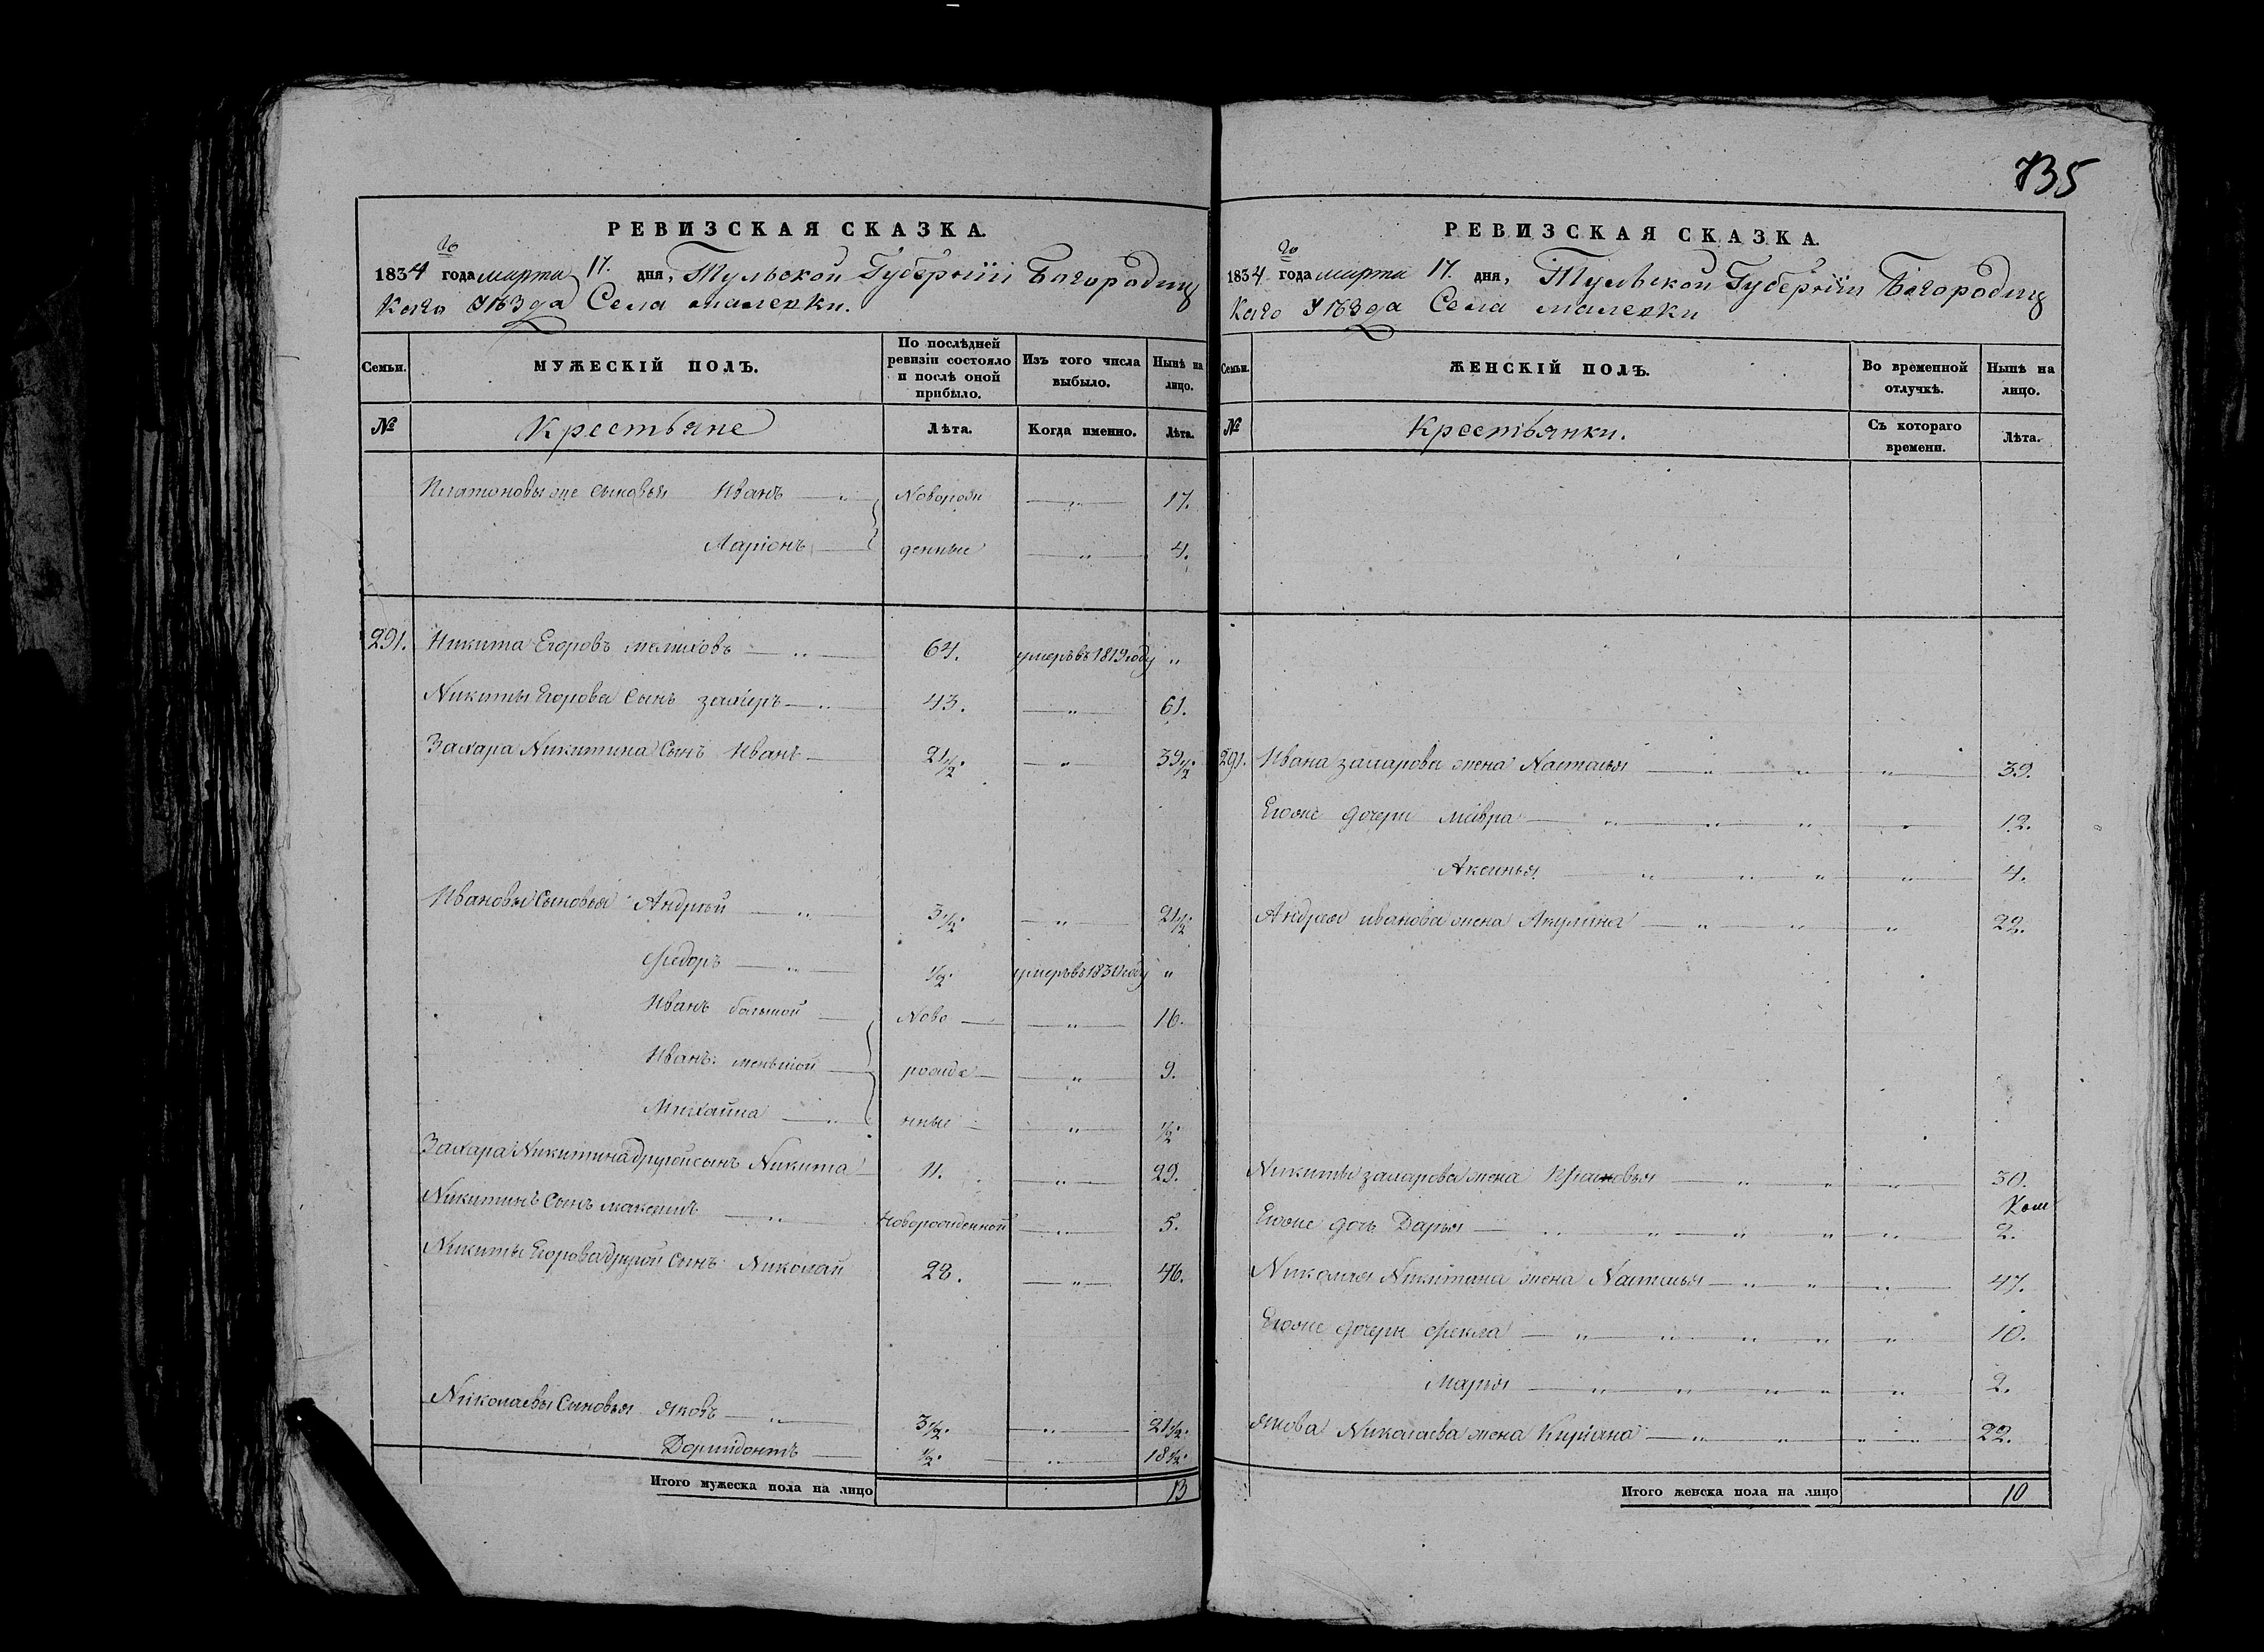 735
РЕВИЗСКАЯ СКАЗКА.
1834 го года марта 17. дня, Тульской Губерніи Богородиц
Каго Уѣзда Села малевки.
Семьи. МУЖЕСКІЙ ПОЛЪ. По послѣдней ревизіи состояло и послѣ оной прибыло. Изъ того числа выбыло. Нынѣ на лицо.
№ Крестьяне Лѣта. Когда именно. Лѣта.
Платоновы еще сыновья Иванъ — „ Новорож — „ — 17.
Ларіонъ — денные — „ — 4.
291. Никита Егоровъ — „ — 64. умеръ въ 1819 году „
Никиты Егорова Сынъ захаръ — „ — 43. — „ — 61.
Захара Никитина Сынъ Иванъ — 21 1/2. — „ — 39 1/2.
Ивановы Сыновья Андрей — „ — 3 1/2. — „ — 21 1/2.
Федоръ — „ — 1/2. умеръ въ году „
Иванъ большой — Ново — — „ — 16.
Иванъ меньшой — рожде — — „ — 9.
Михайла — „ — нные — — „ — 1/2.
Захара Никитина другой сынъ Никита — 11. — „ — 29.
Никитинъ Сынъ максимъ — „ — Новорожденной — „ — 5.
Никиты Егорова другой Сынъ Николай 28. — „ — 46.
Николаевы Сыновья яковъ — „ — 3 1/2. — „ — 21 1/2.
Дормидонтъ — 1/2. — „ — 18 1/2.
Итого мужеска пола на лицо 13
РЕВИЗСКАЯ СКАЗКА.
1834 го года марта 17. дня, Тульской Губерніи Богородиц
Каго Уѣзда Села малевки
Семьи. ЖЕНСКІЙ ПОЛЪ. Во временной отлучкѣ. Нынѣ на лицо.
№ Крестьянки. Съ котораго времени. Лѣта.
291. Ивана захарова жена Наталья — „ — „ — „ — 39.
Егоже дочери мавра — „ — „ — „ — „ — 12.
Аксинья — „ — „ — „ — „ — 4.
Андрея иванова жена Акулина — „ — „ — „ — 22.
Никиты захарова жена Прасковья — „ — „ — „ — 30.
Егоже дочь Дарья — „ — „ — „ — „ — „ — 2.
Николая Никитина жена Наталья — „ — „ — „ — 47.
Егоже дочери Фекла — „ — „ — „ — „ — „ — 10.
Марья — „ — „ — „ — „ — „ — 2.
якова Николаева жена — „ — „ — „ — „ — 22.
Итого женска пола на лицо 10